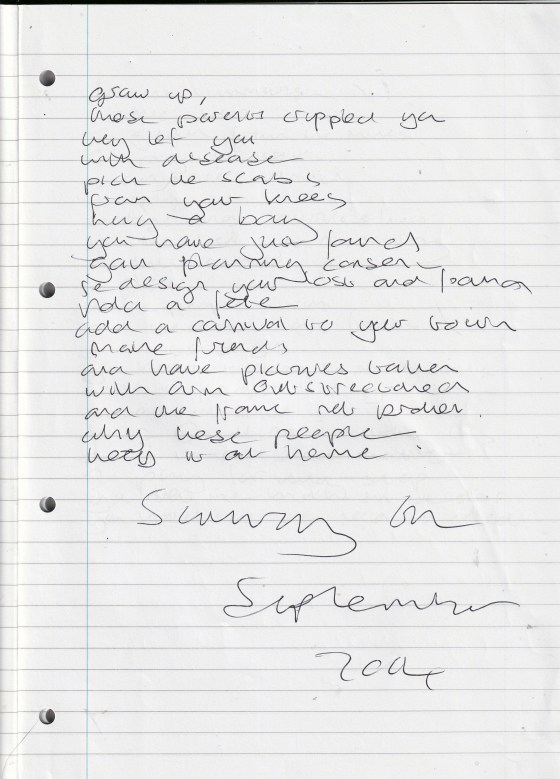 grow up,
these parents crippled you
they left you
with disease
pick the scabs
from your knees
hug a boy
you have just found
gain planning consent
re design your lost and found
hold a fête
add a carnival to your town
make friends
and have pictures taken
with arm outstretched
and the frame not broken.
why these people
need to at home.
6th
September
2004